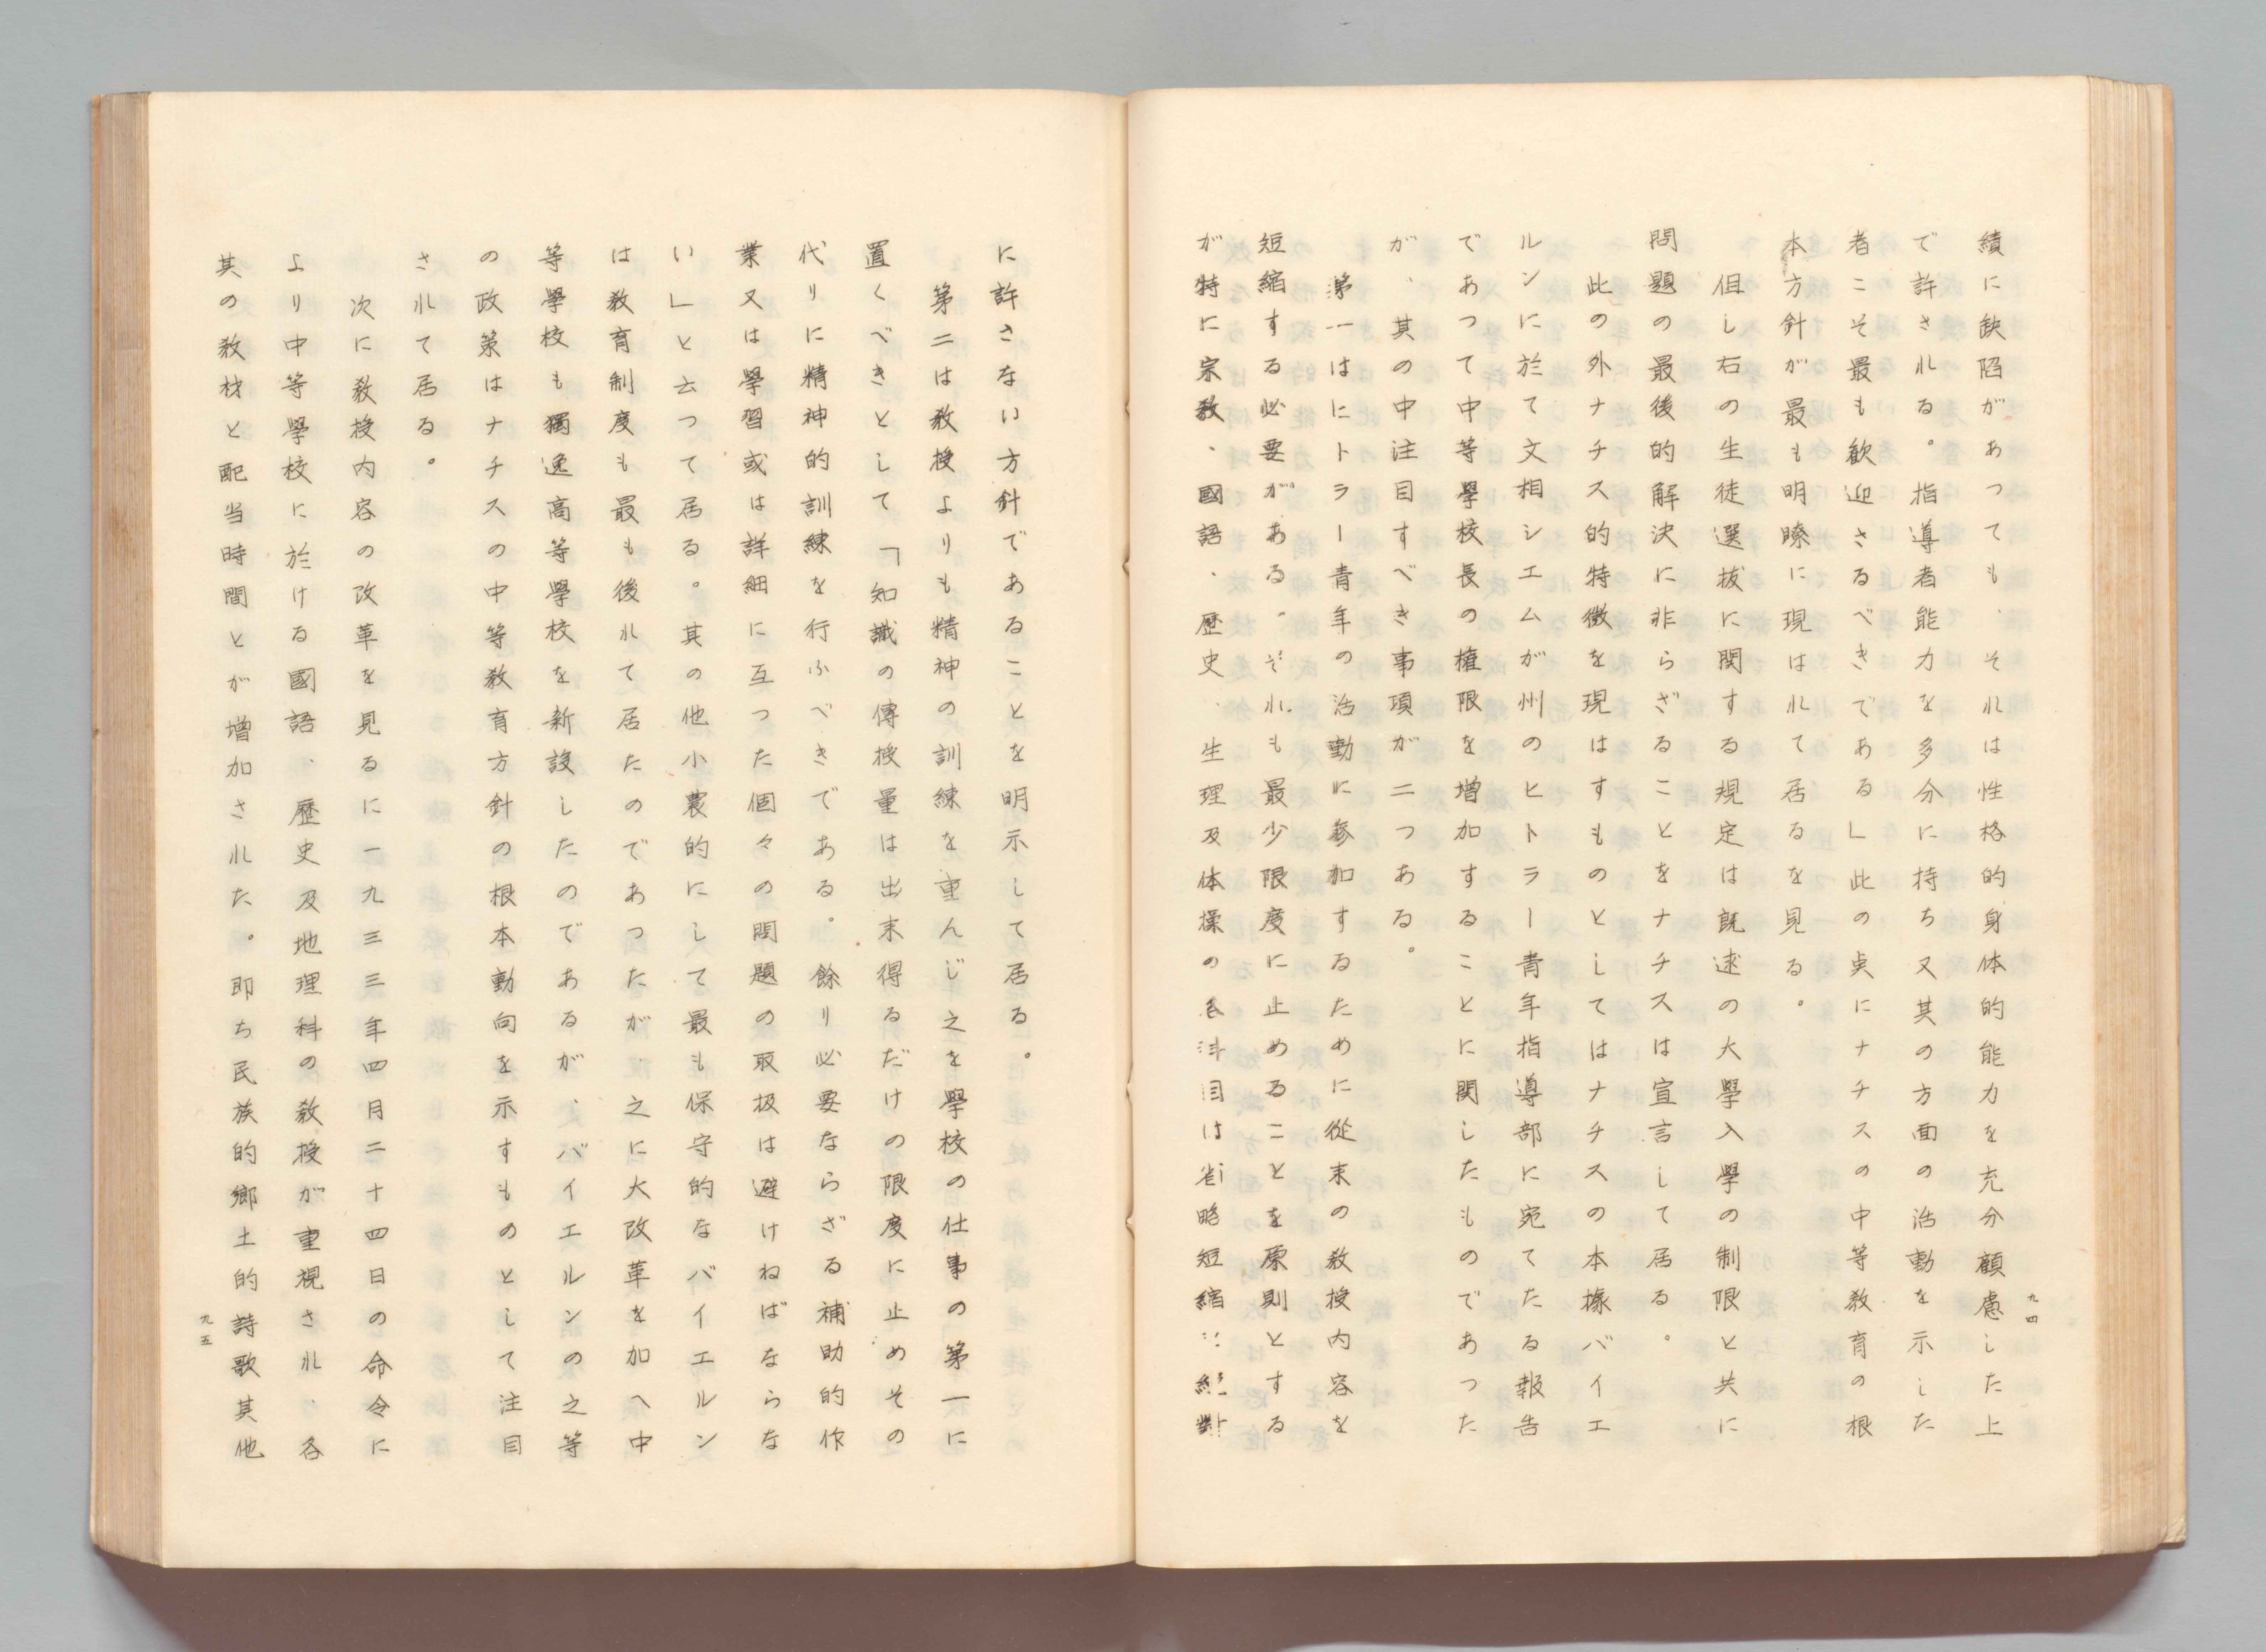 九四
績に缺陷があつても、それは性格的身体的能力を充分顧慮した上
で許される。指導者能力を多分に持ち又其の方面の活動を示した
者こそ最も歓迎さるべきである」此の点にナチスの中等教育の根
本方針が最も明瞭に現はれて居るを見る。
但し右の生徒選抜に関する規定は既述の大學入學の制限と共に
問題の最後的解決に非らざることをナチスは宣言して居る。
此の外ナチス的特徴を現はすものとしてはナチスの本據バイエ
ルンに於て文相シエムが州のヒトラー青年指導部に宛てたる報告
であつて中等學校長の権限を増加することに関したものであつた
が、其の中注目すべき事項が二つある。
第一はにトラー青年の活動に参加するために從来の教授内容を
短縮する必要がある。それも最少限度に止めることを原則とする
が特に宗教、國語、歴史、生理及体操の各科目は省略短縮は絶對
に許さない方針であることを明示して居る。
第二は教授よりも精神の訓練を重んじ之を學校の仕事の第一に
置くべきとして「知識の傳授量は出来得るだけの限度に止めその
代りに精神的訓練を行ふべきである。餘り必要ならざる補助的作
業又は學習或は詳細に亙つた個々の問題の取扱は避けねばならな
い」と云つて居る。其の他小農的にして最も保守的なバイエルン
は教育制度も最も後れて居たのであつたが、之に大改革を加へ中
等學校も獨逸高等學校を新設したのであるが、バイエルンの之等
の政策はナチスの中等教育方針の根本動向を示すものとして注目
されて居る。
次に教授内容の改革を見るに一九三三年四月二十四日の命令に
より中等學校に於ける國語、歴史及地理科の教授が重視され、各
其の教材と配当時間とが増加された。即ち民族的郷土的詩歌其他
九五